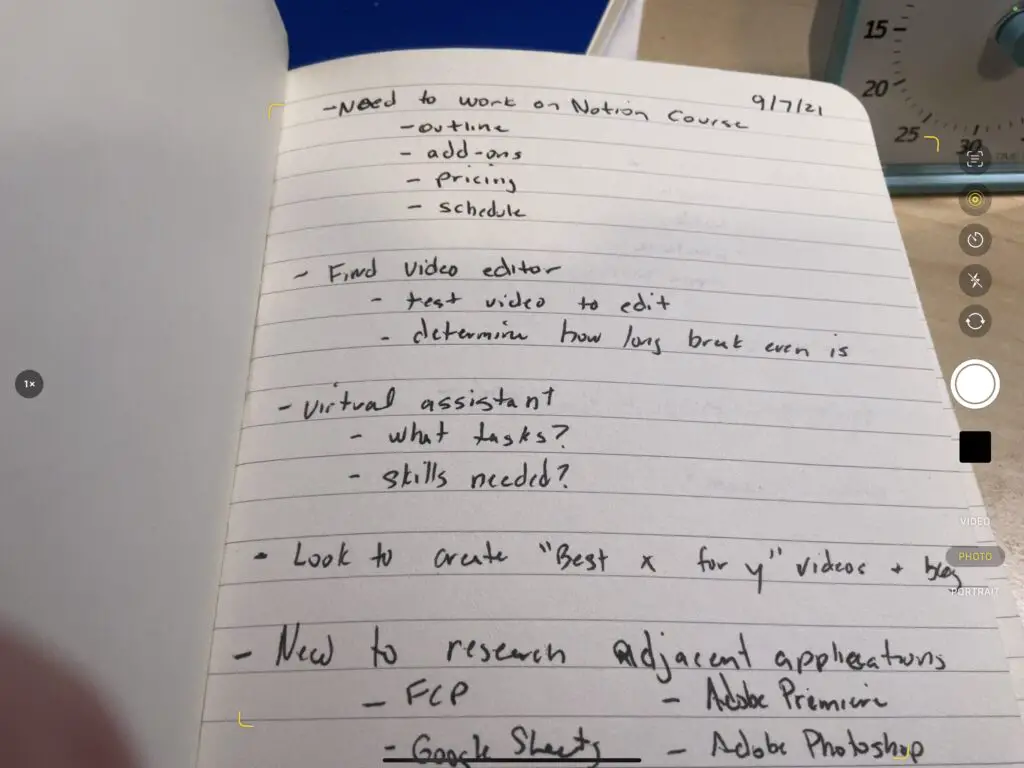 15
20
25
30
9/7/21
- Need to work on Notion Course
- outline
- add-ons
- pricing
- schedule
- Find video editor
- test video to edit
- determine how long break even is
- Virtual assistant
- what tasks?
- skills needed?
- Look to create "Best x for y" videos + blog
- Need to research Adjacent applications
- FCP - Adobe Premiere
- Google Sheets - Adobe Photoshop
1×
VIDEO
PHOTO
PORTRAIT